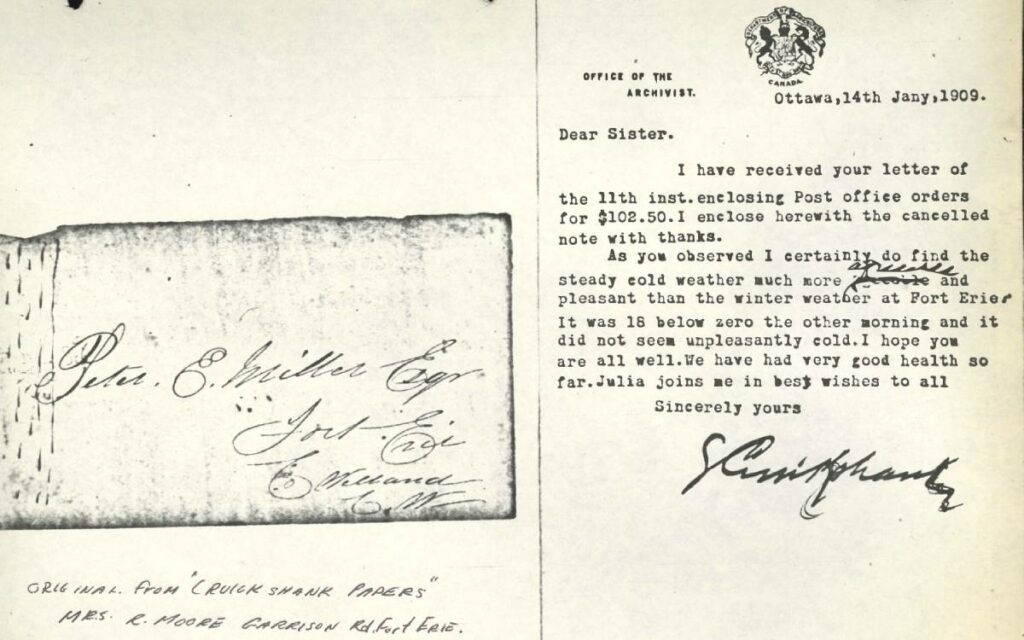 Peter. E. Miller Esqr
Fort. Erie
Co Welland
C. W.
ORIGINAL FROM "CRUICKSHANK PAPERS"
MRS. R. MOORE GARRISON Rd. Fort ERIE.
CANADA
OFFICE OF THE
ARCHIVIST.
Ottawa,14th Jany,1909.
Dear Sister.
I have received your letter of
the 11th inst.enclosing Post office orders
for $102.50.I enclose herewith the cancelled
note with thanks.
As you observed I certainly do find the
steady cold weather much more and
pleasant than the winter weather at Fort Erie.
It was 18 below zero the other morning and it
did not seem unpleasantly cold.I hope you
are all well.We have had very good health so
far.Julia joins me in best wishes to all
Sincerely yours
Cruikshank